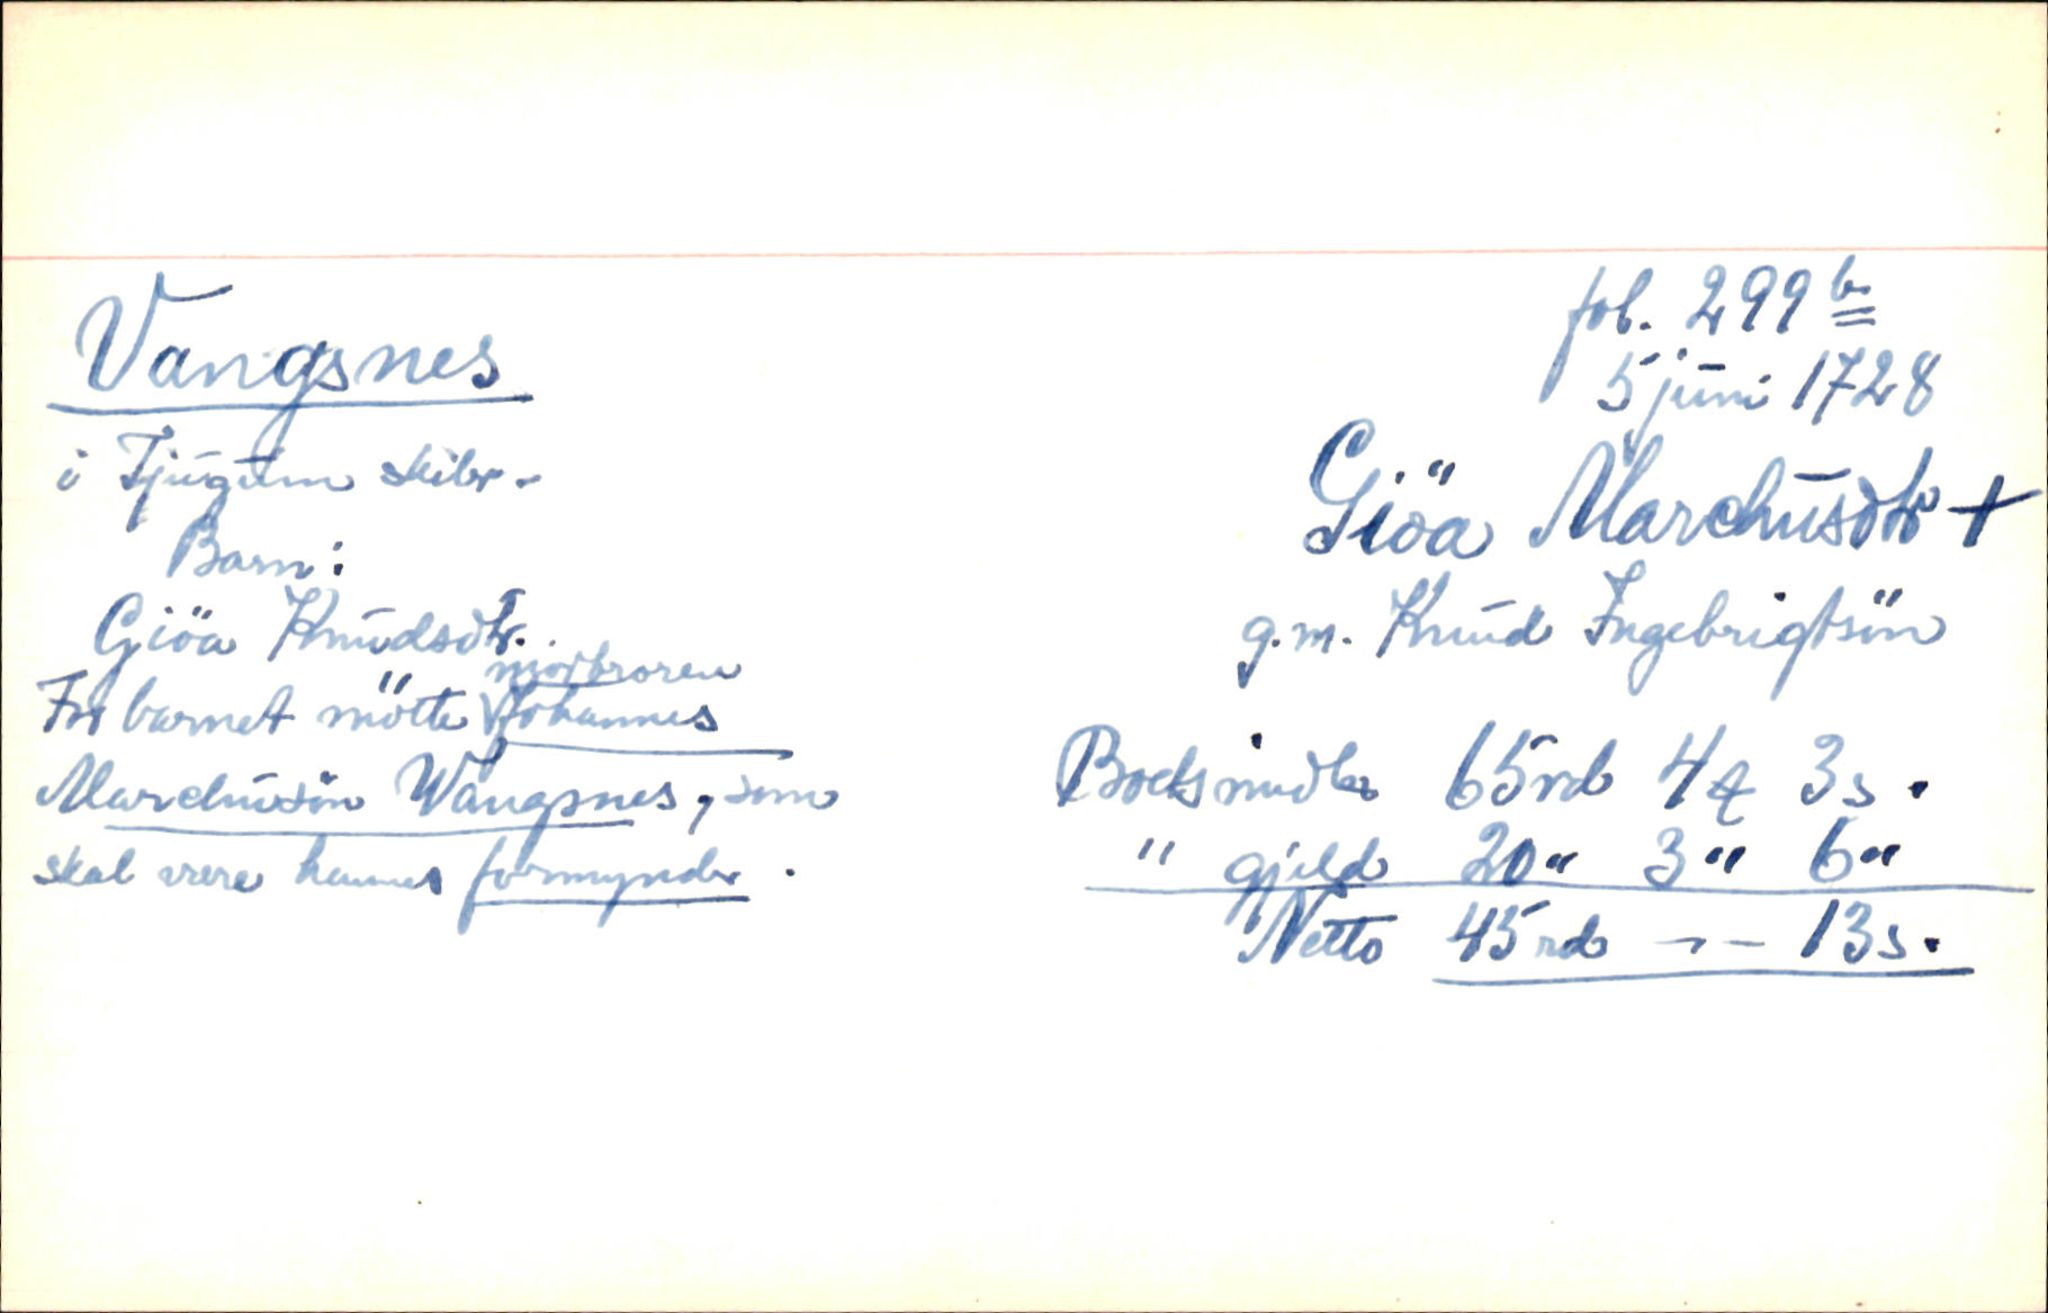 fol. 299 b.
5 juni 1728
Vangsnes
i Tjugum skibr.
Giöa Marchusdtr +
g.m. Knud Ingebrigtsön
Barn:
Giöa Knudsdtr.
morbroren
For barnet mötte Johannes
Marchusön Wangsnes, som
skal være hennes formynder.
Boets midler 65 rd 4 q 3 s.
" gjeld 20 " 3 " 6 "
Netto 45 rd - - 13 s.